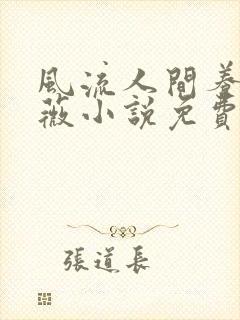 風流人間養
薇小說免費
張道長